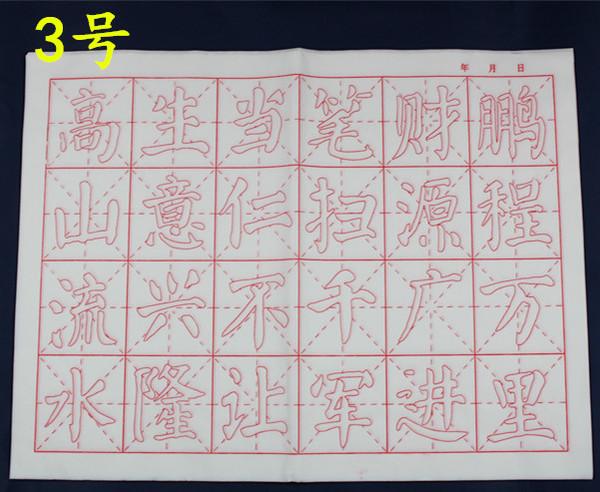 3号
年 月 日
鹏程万里
财源广进
笔扫千军
当仁不让
生意兴隆
高山流水